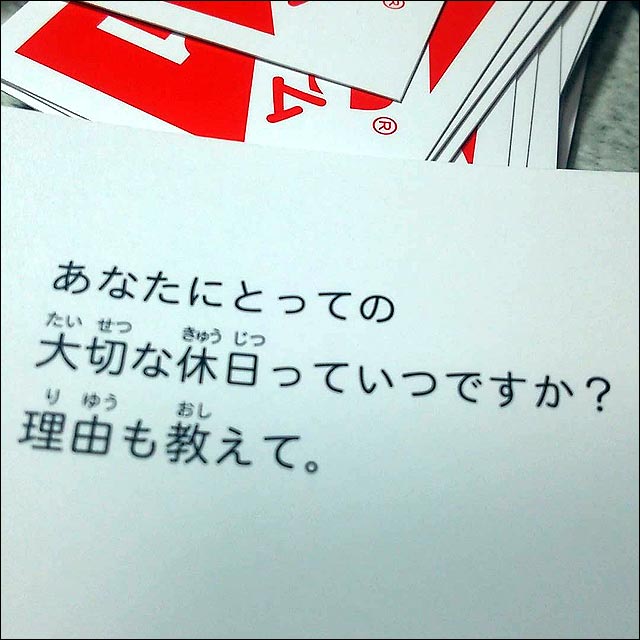 1
ム
®
®
あなたにとっての
たい せつ きゅう じつ
大切な休日っていつですか？
り ゆう おし
理由も教えて。